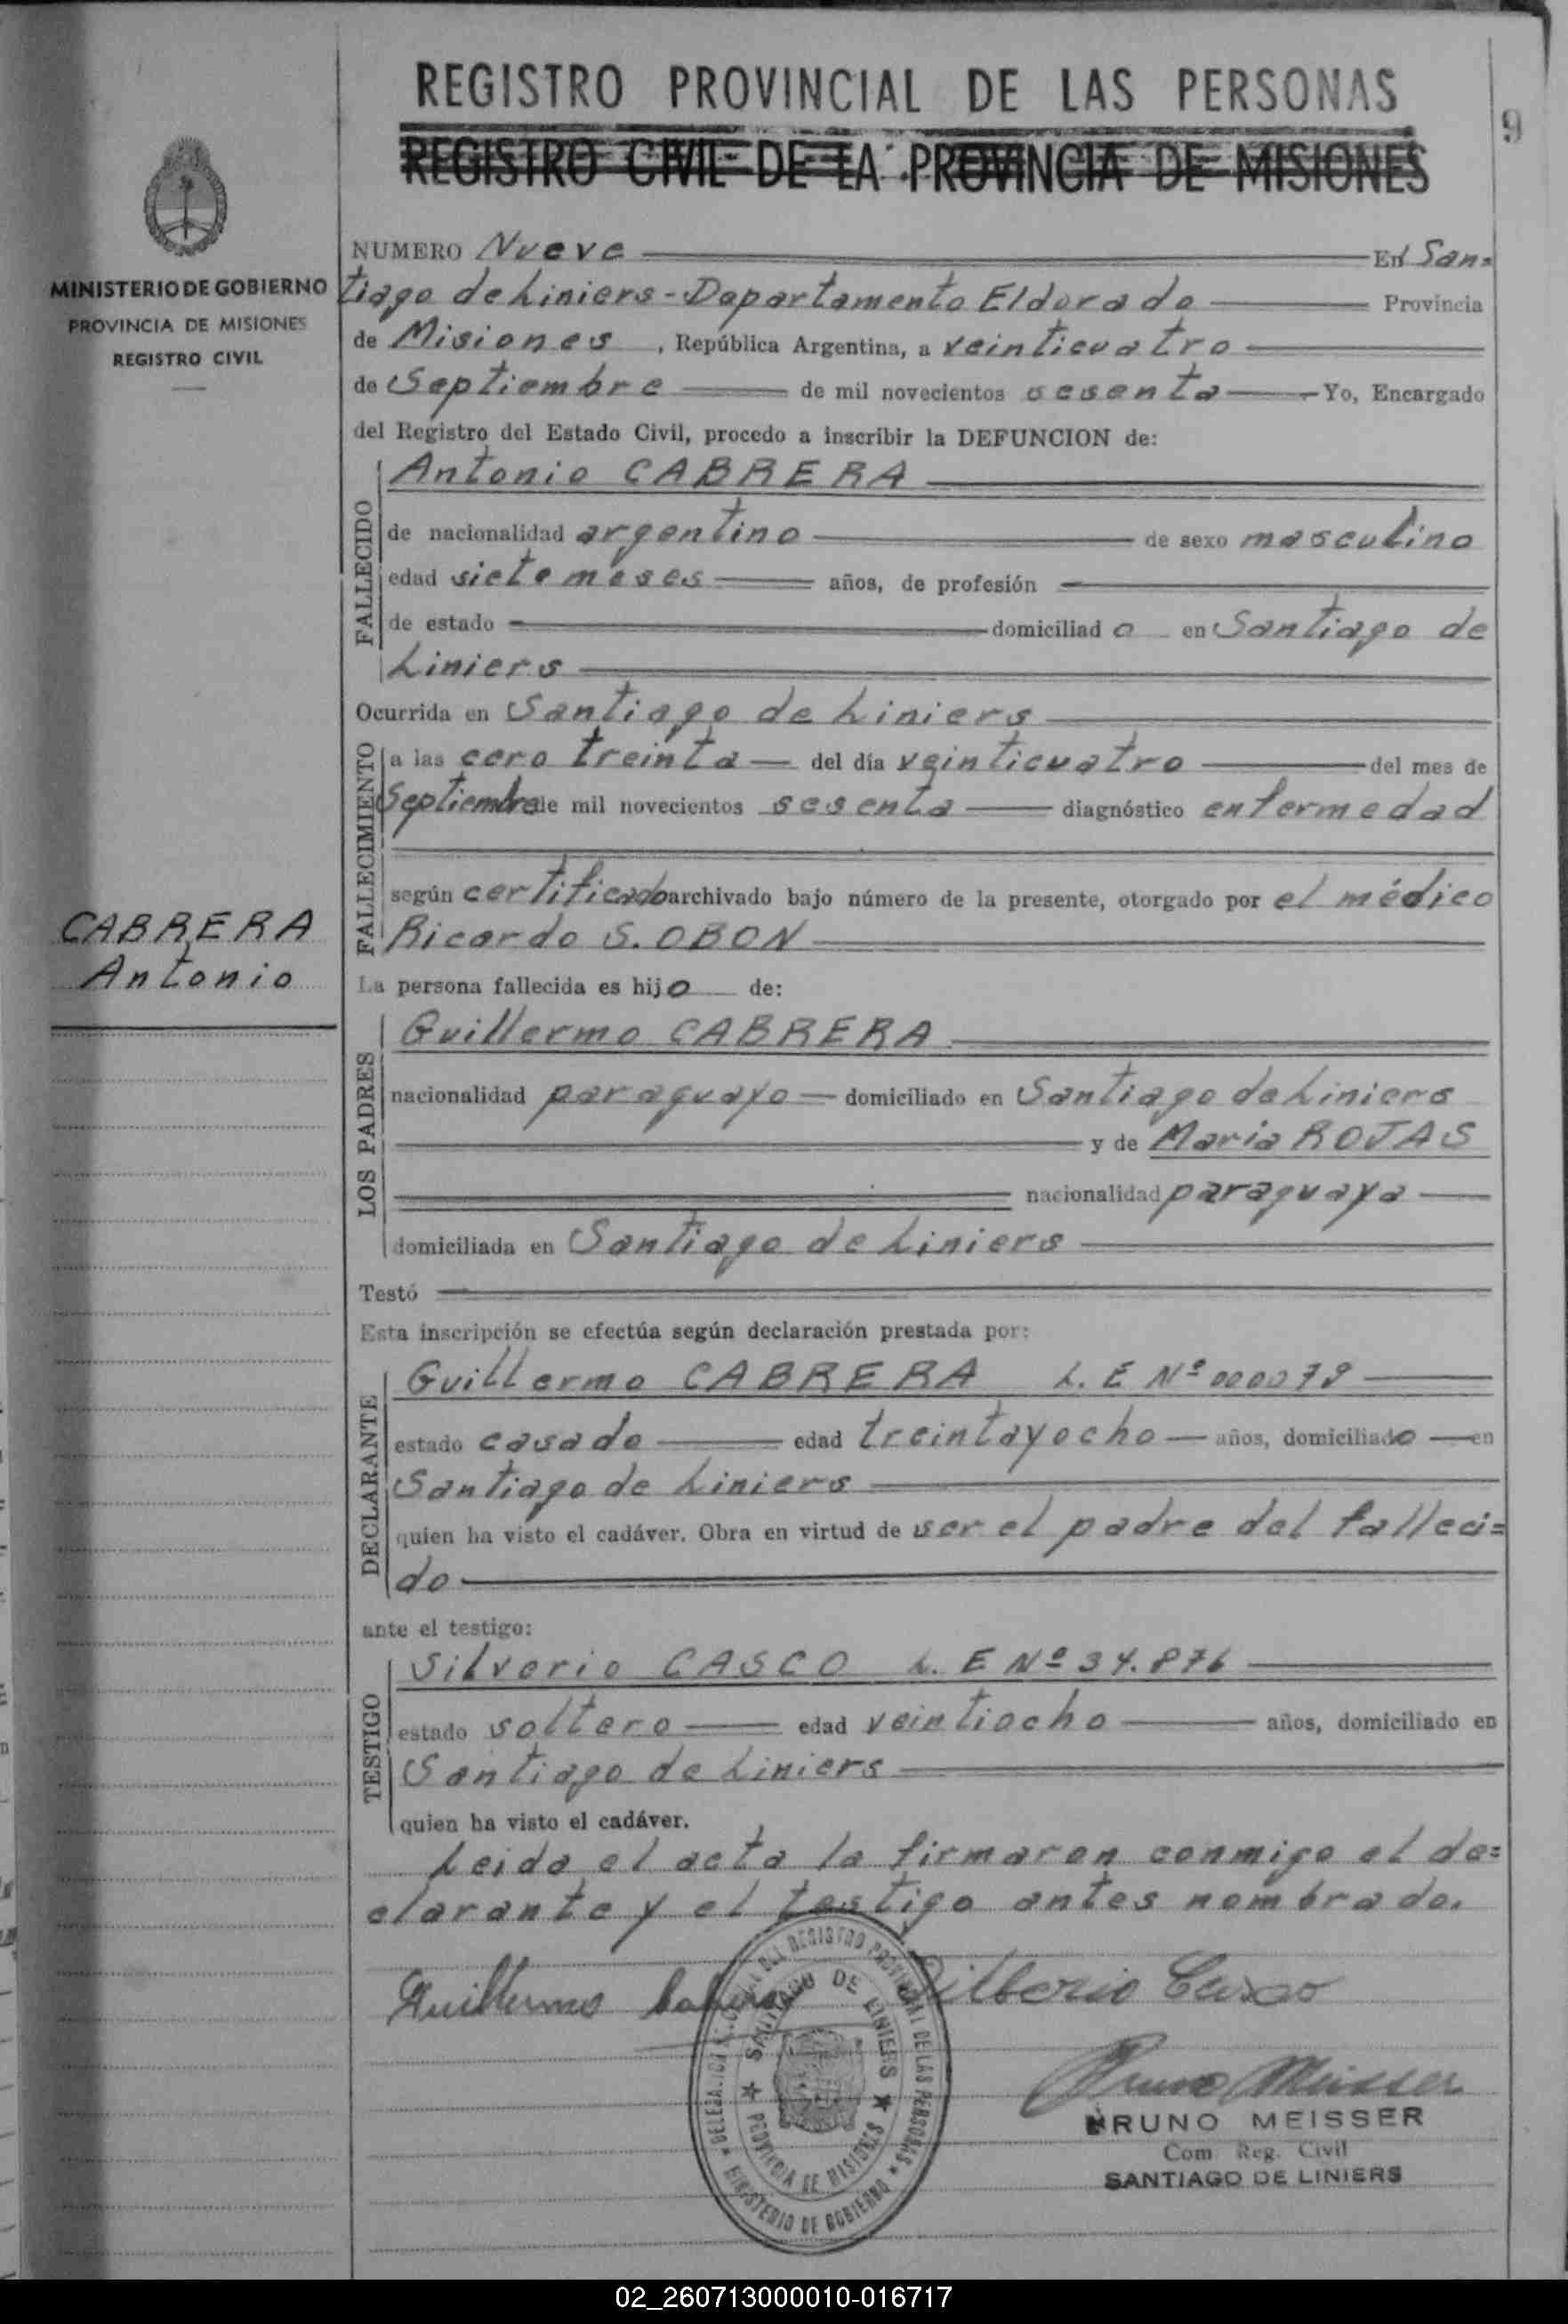 REGISTRO PROVINCIAL DE LAS PERSONAS
9
REGISTRO CIVIL DE LA PROVINCIA DE MISIONES
MINISTERIO DE GOBIERNO
PROVINCIA DE MISIONES
REGISTRO CIVIL
NUMERO Nueve En San=
tiago de Liniers - Departamento Eldorado Provincia
de Misiones, República Argentina, a veinticuatro
de Septiembre de mil novecientos sesenta Yo, Encargado
del Registro del Estado Civil, procedo a inscribir la DEFUNCION de:
FALLECIDO
Antonio CABRERA
de nacionalidad argentino de sexo masculino
edad siete meses años, de profesión
de estado domiciliado en Santiago de
Liniers
Ocurrida en Santiago de Liniers
FALLECIMIENTO
a las cero treinta del día veinticuatro del mes de
Septiembre de mil novecientos sesenta diagnóstico enfermedad
según certificado archivado bajo número de la presente, otorgado por el médico
Ricardo S. OBON
CABRERA
Antonio
La persona fallecida es hijo de:
LOS PADRES
Guillermo CABRERA
nacionalidad paraguayo domiciliado en Santiago de Liniers
y de Maria ROJAS
nacionalidad paraguaya
domiciliada en Santiago de Liniers
Testó
Esta inscripción se efectúa según declaración prestada por:
DECLARANTE
Guillermo CABRERA L. E Nº
estado casado edad treintayocho años, domiciliado en
Santiago de Liniers
quien ha visto el cadáver. Obra en virtud de ser el padre del falleci=
do
ante el testigo:
TESTIGO
Silverio CASCO L. E Nº 34.876
estado soltero edad veintiocho años, domiciliado en
Santiago de Liniers
quien ha visto el cadáver.
Leida el acta la firmaron conmigo el de=
clarante y el testigo antes nombrado.
Guillermo Cabrera Silberio Casco
SANTIAGO DE LINIERS
PROVINCIA DE MISIONES
MINISTERIO DE GOBIERNO
Bruno Meisser
BRUNO MEISSER
Com Reg. Civil
SANTIAGO DE LINIERS
02_260713000010-016717